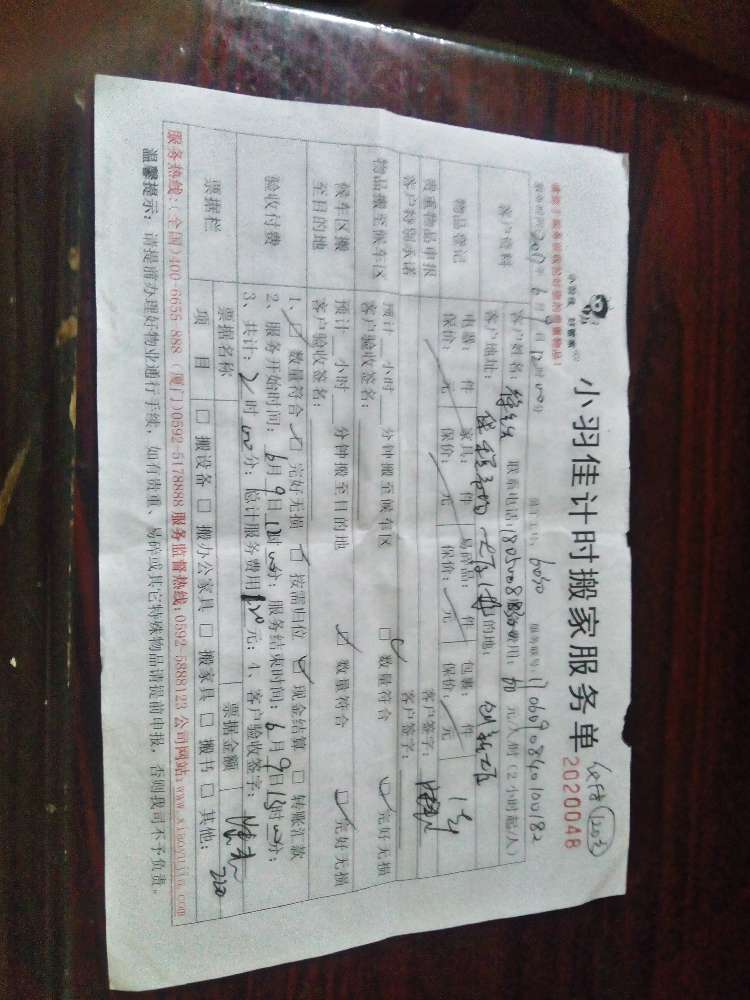 小羽佳 好管家
小羽佳计时搬家服务单
仅结 120元
2020048
请您于服务前收拾好您的贵重物品!
服务时间:2017年6月9日12时00分
员工工号:6030
服务账号:1706090840100182
客户资料
客户姓名: 联系电话: 费用: 元/人时(2小时起/人)
客户地址: 目的地: 创新路
物品登记
电器: 件 家具: 件 易碎品: 件 包裹: 件
保价: 元 保价: 元 保价: 元 保价: 元
贵重物品申报
客户特别承诺
客户签字:
客户签字:
物品搬至候车区
预计 小时 分钟搬至候车区 □数量符合 □完好无损
客户验收签名:
候车区搬至目的地
预计 小时 分钟搬至目的地 □数量符合 □完好无损
客户验收签名:
验收付费
1、□数量符合 □完好无损 □按需归位 □现金结算 □转账汇款
2、服务开始时间:6月9日 时00分;服务结束时间:6月9日 时00分;
3、共计:2时00分;总计服务费用120元;4、客户验收签字:
票据栏
票据名称 票据金额 220
项目 □搬设备 □搬办公家具 □搬家具 □搬书 □其他:
服务热线:(全国)400-6655-888 (厦门)0592-5178888 服务监督热线:0592-5888123 公司网站:www.xiaoyujia.com
温馨提示:请提前办理好物业通行手续,如有贵重、易碎或其它特殊物品请提前申报,否则我司不予负责。